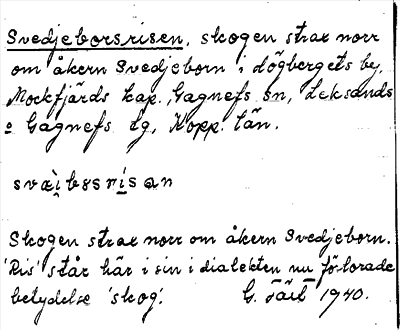 Svedjeborsrisen, skogen strax norr
om åkern Svedjeborn i Högbergets by,
Mockfjärds kap., Gagnefs sn, Leksands
o Gagnefs tg, Kopp. län.
Skogen strax norr om åkern Svedjeborn.
'Ris' står här i sin i dialekten nu förlorade
betydelse 'skog'. G. 1940.